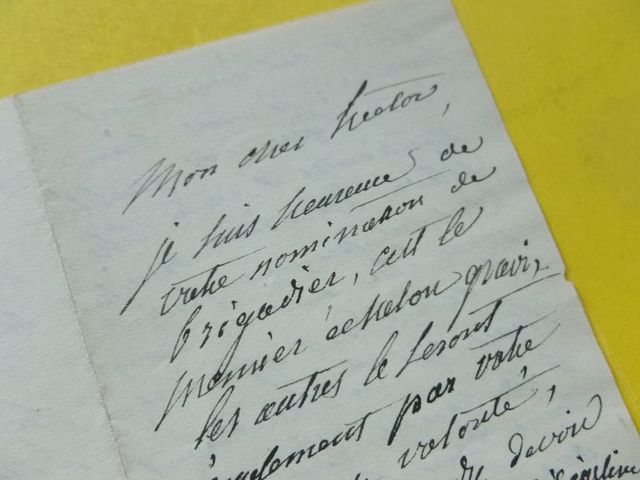 Mon cher Hector,
je suis heureuse de
votre nomination de
brigadier, c'est le
premier échelon gravi,
les autres le seront
également par votre
volonté,
devoir